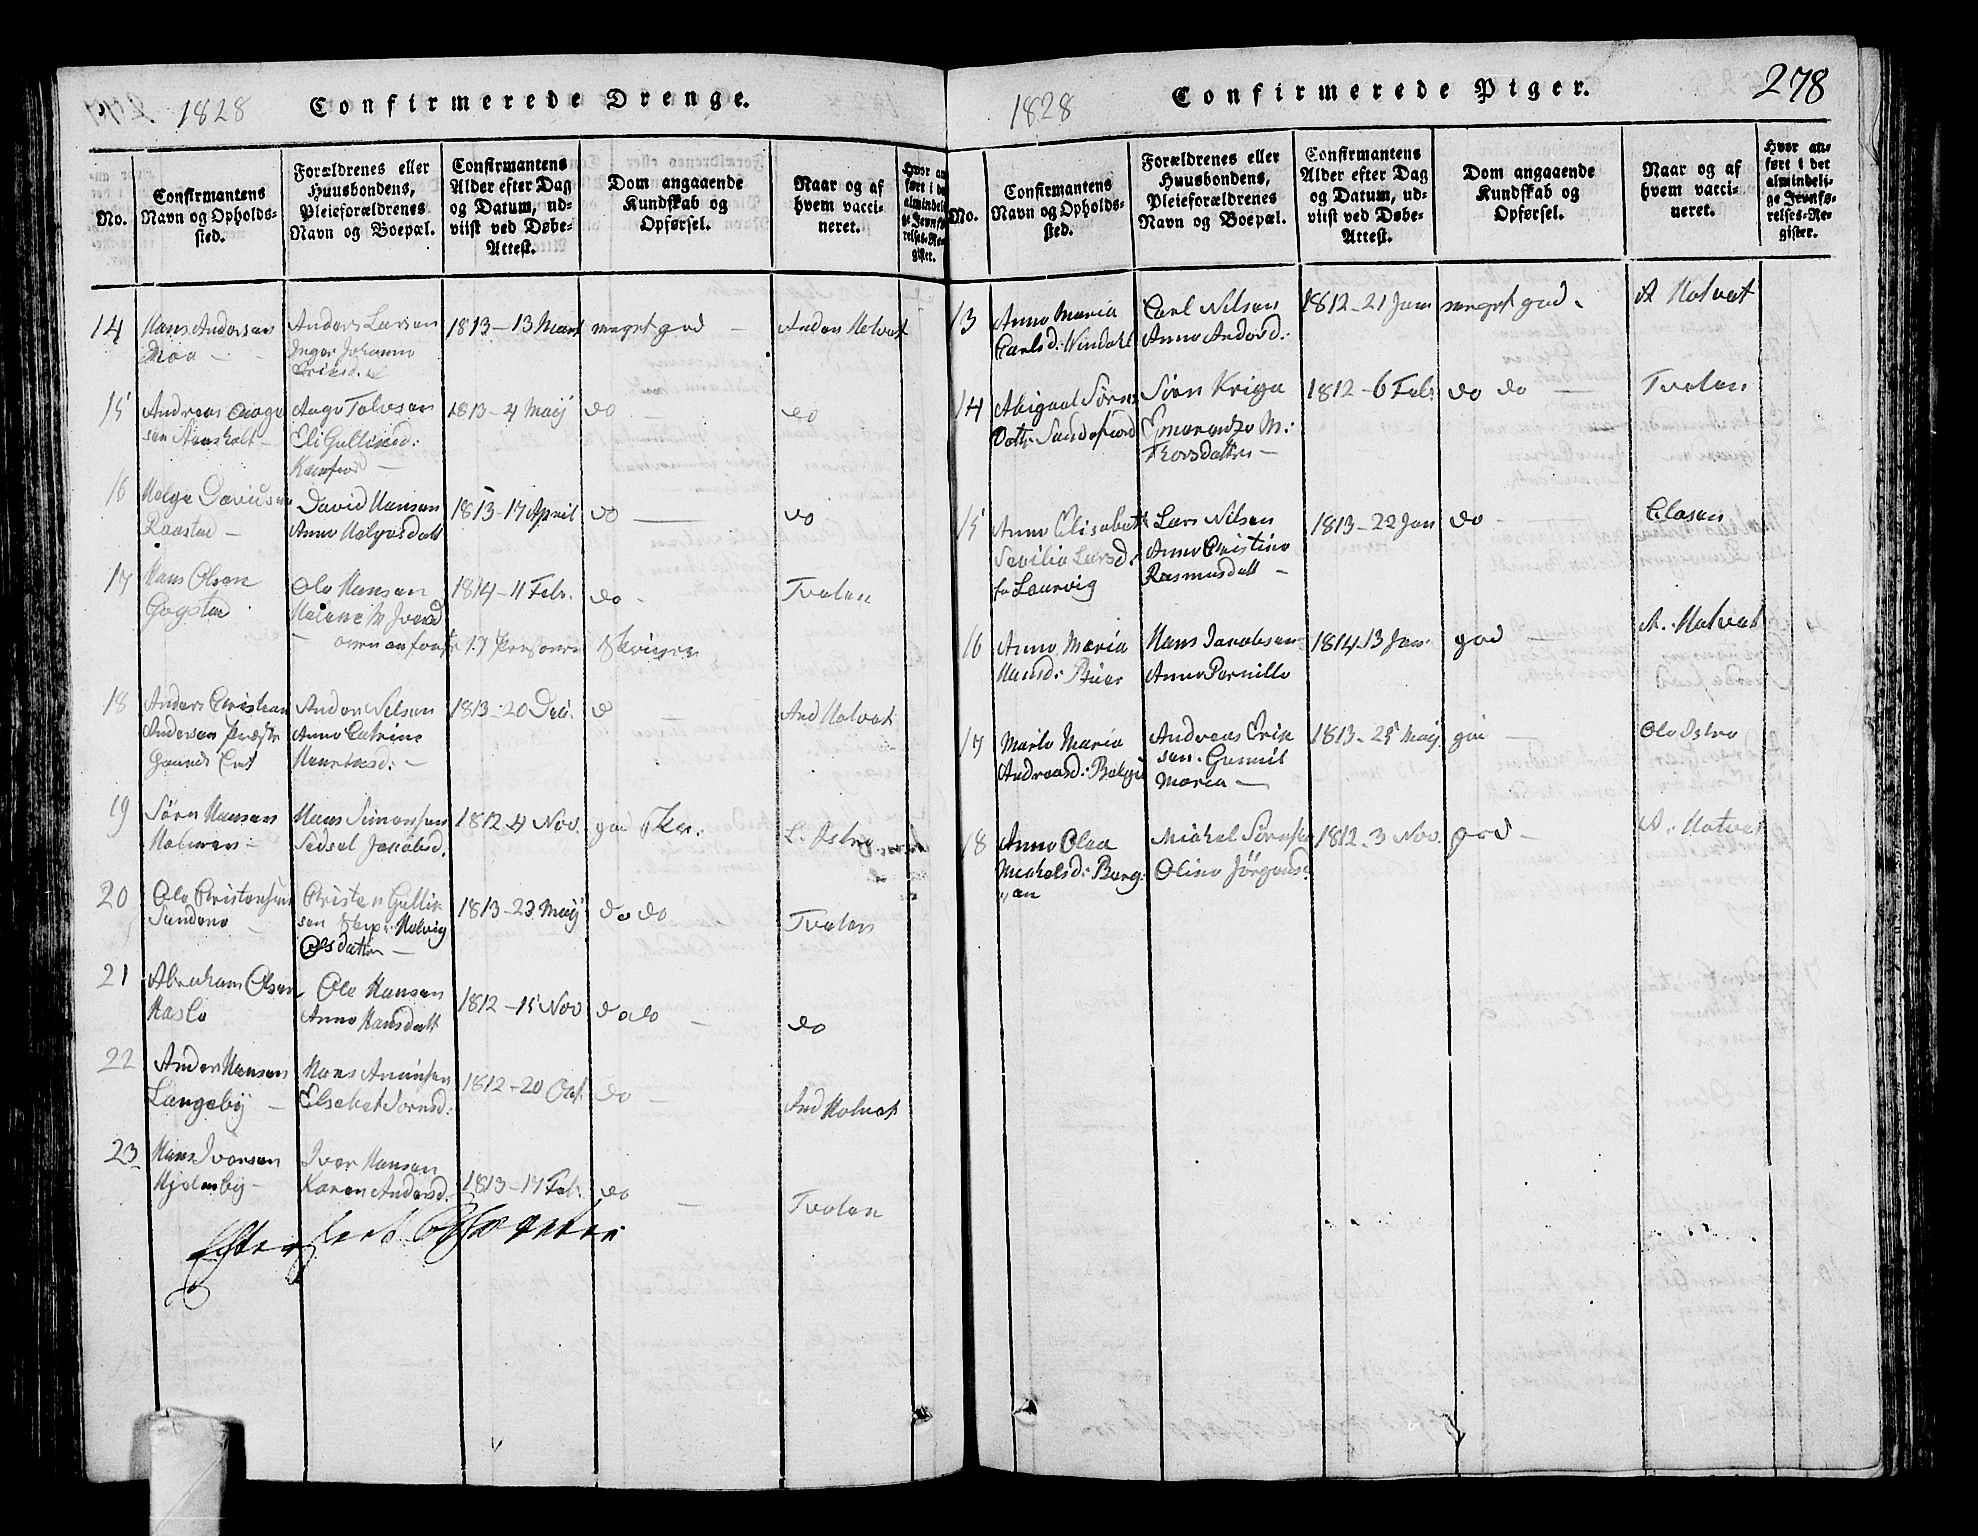 1828 Confirmerede Drenge.
No.
Confirmantens
Navn og Opholds-
sted.
Forældrenes eller
Huusbondens,
Pleieforældrenes
Navn og Boepæl.
Confirmantens
Alder efter Dag
og Datum, ud-
viist ved Døbe-
Attest.
Dom angaaende
Kundskab og
Opførsel.
Naar og af
hvem vacci-
neret.
Hvor an
ført i de
almindeli
ge Jevnfø
relses-Re
gister.
14 Hans Andersen
Moa -
Anders Larsen
Inger Johanne
1813-13 Mart
meget god -
Anders Holvat
15 Andreas Aage
sen Stensholt -
Aage Tolvsen
Eli Gullixsd:
1813-4 Maij
do
do
16 Helge Davidsen
Raastad -
David Hansen
Anne Helgesdatt
1813-17 April
do -
do
17 Hans Olsen
Gogstad
Ole Hansen
Helene M Iversd
1814-11 Febr.
do -
Tveten
ovenanførte 17 Personer
18 Anders Christian
Andersen Præste
Anders Nilsen
Anne Catrine
1813-20 Dec.
d -
And Holvat
19 Søren Hansen
Holmen -
Hans Simonsen
Sedsel Jacobsd.
1812 4 Nov.
god
L. Istre
20 Ole Christensen
Sundene -
Christen Gullik
sen Helvig
Olsdatter -
1813-23 Maij
do do
Tveten
21 Abraham Olsen
Hasle
Ole Hansen
Anne Hansdatt
1812-15 Nov
do do -
do
22 Anders Hansen
Langeby -
Hans
Elsebet Sørensd:
1812-20 Oct.
do -
And Holvat
23 Hans Iversen
Hjelmby -
Iver Hansen
Karen Andersd.
1813-17 Feb.
do -
Tveten
1828 Confirmerede Piger. 278
No.
Confirmantens
Navn og Opholds-
sted.
Forældrenes eller
Huusbondens,
Pleieforældrenes
Navn og Boepæl.
Confirmantens
Alder efter Dag
og Datum, ud-
viist ved Døbe-
Attest.
Dom angaaende
Kundskab og
Opførsel.
Naar og af
hvem vacci-
neret.
Hvor an-
ført i det
almindeli-
ge Jevnfø-
relses-Re-
gister.
13 Anne Maria
Carlsd: Vindahl
Carl Nilsen
Anne Andersd:
1812-21 Jan
meget god.
A Holvat
14 Abigael Sørens
Dottr Sandefiord
Søren Krige
Emerentze M:
Thorsdatter -
1812-6 Feb.
do do -
Tveten
15 Anne Elisabeth
Sesilia Larsd:
fr Laurvig
Lars Nilsen
Anne Christine
Rasmusdatt -
1813-22 Jan
do -
Clasen
16 Anne Maria
Hansd: Buer
Hans Jacobsen
Anne Pernille
1814-13 Jan
god -
A. Holvat
17 Marte Maria
Andreasd:
Andreas Erik
sen. Gunnil
Maria -
1813-25 Maij
god -
Ole Istre
18 Anne Olea
Mickelsd: Berg
an
Mickel Sørensen
Oline Jørgensd
1812-3 Nov.
god -
A. Holvat